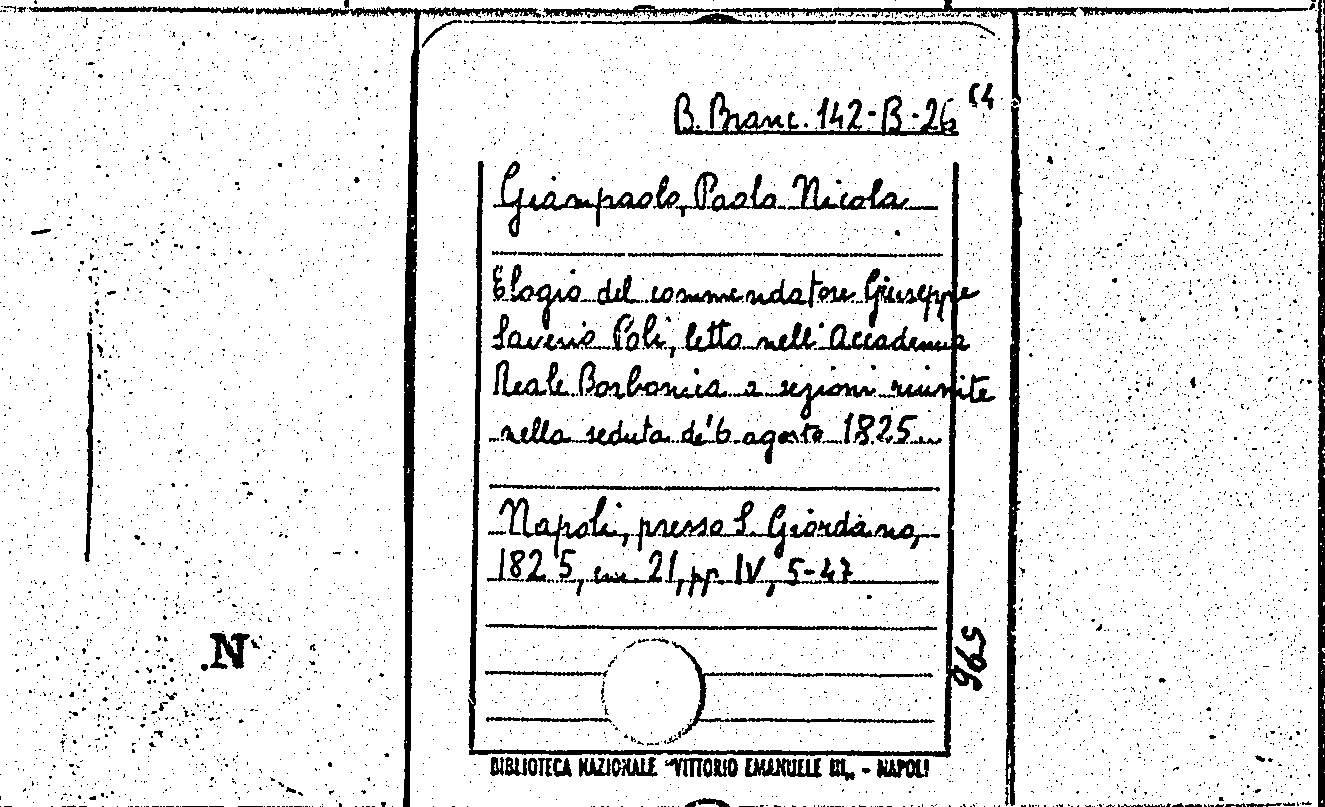 B. Branc. 142-B-26 (4
Giampaolo, Paolo Nicola
Elogio del commendatore Giuseppe
Saverio Poli, letto nell'Accademia
Reale Borbonica a sezioni riunite
nella seduta de' 6 agosto 1825.
Napoli, presso S. Giordano,
1825, cm. 21, pp. IV, 5-47
596
N
BIBLIOTECA NAZIONALE "VITTORIO EMANUELE III„ - NAPOLI